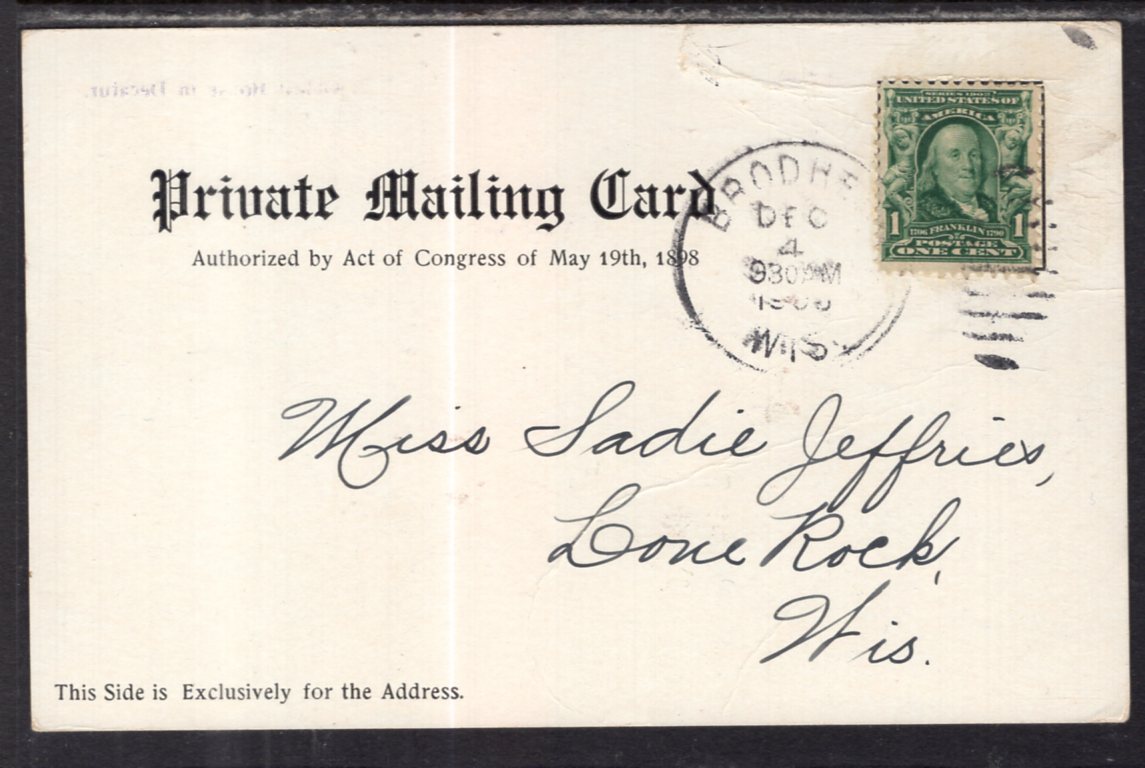 Private Mailing Card
Authorized by Act of Congress of May 19th, 1898
SERIES 1902
UNITED STATES OF
AMERICA
1 1
1706 FRANKLIN 1790
POSTAGE
ONE CENT
BRODHE
DEC
4
930AM
WIS
Miss Sadie Jeffries,
Lone Rock,
Wis.
This Side is Exclusively for the Address.